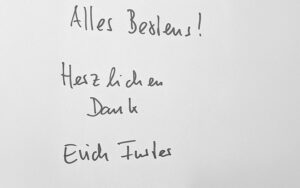 Alles Bestens!
Herzlichen
Dank
Erich